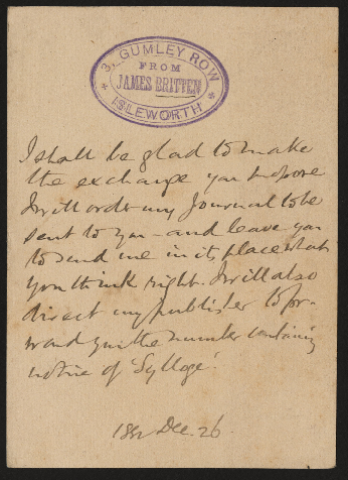 3, GUMLEY ROW
FROM
JAMES BRITTEN
ISLEWORTH
I shall be glad to make
the exchange you propose
I will order my Journal to be
sent to you - and leave you
to send me in its place what
you think right. I will also
direct my publisher to for-
ward you the number containing
notice of 'Sylloge'.
Dec. 26